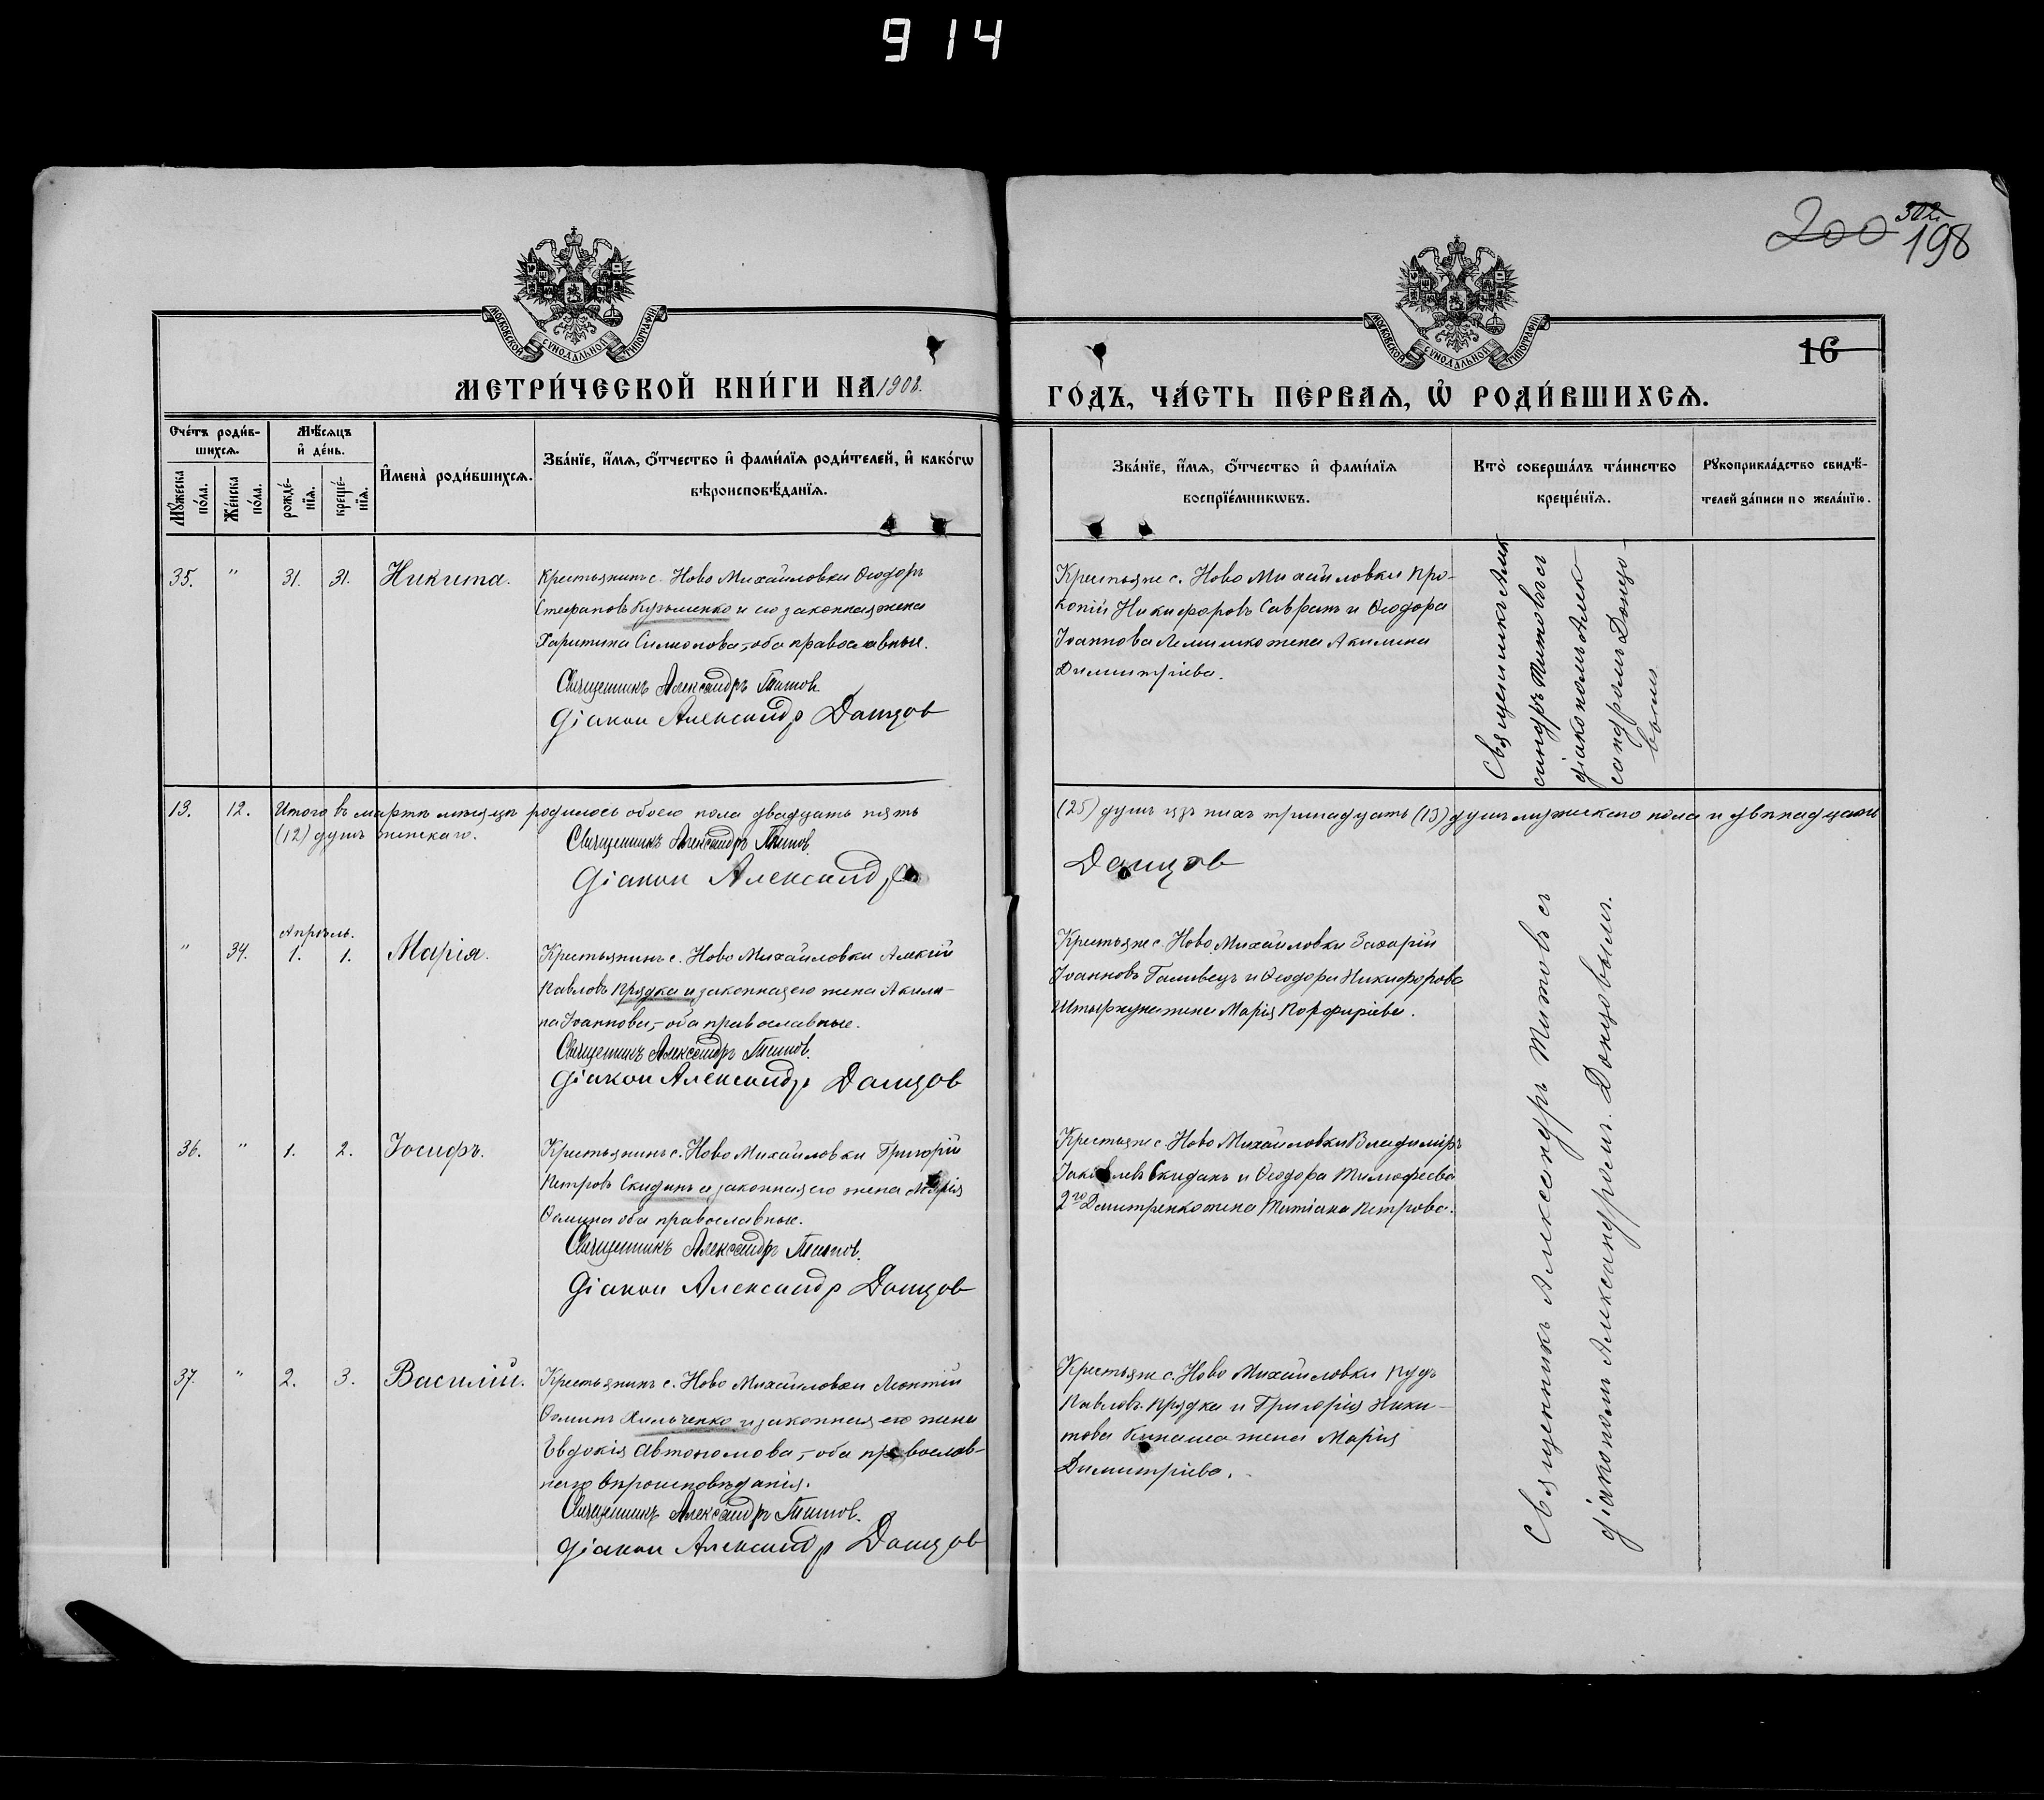 914
200 302 198
МОСКОВСКОЙ СѴНОДАЛЬНОЙ ТИПОГРАФІИ
МОСКОВСКОЙ СѴНОДАЛЬНОЙ ТИПОГРАФІИ
16
МЕТРИ́ЧЕСКОЙ КНИ́ГИ НА 1908.
ГО́ДЪ, ЧА́СТЬ ПЕ́РВАѦ, Ѡ҆ РОДИ́ВШИХСѦ.
Сче́тъ роди́в-
шихсѧ.
Мꙋ́жеска по́ла.
Же́нска по́ла.
Мѣ́сѧцъ
и҆ де́нь.
рожде́-
нїѧ.
креще́-
нїѧ.
И҆мена̀ роди́вшихсѧ.
Зва́нїе, и҆́мѧ, ѻ҆́тчество и҆ фами́лїѧ роди́телей, и҆ како́гѡ
вѣроисповѣ́данїѧ.
Зва́нїе, и҆́мѧ, ѻ҆́тчество и҆ фами́лїѧ
воспрїе́мникѡвъ.
Кто̀ соверша́лъ та́инство
креще́нїѧ.
Рꙋкоприкла́дство свидѣ́-
телей за́писи по жела́нїю.
35. " 31. 31. Никита.
Крестьянинъ с. Ново Михайловки Ѳеодоръ
Стефановъ Кузьменко и его законная жена
Харитина Симонова,- оба православные.
Священникъ Александръ Титов.
Діакон Александр Донцов
Крестьяне с. Ново Михайловки Про-
копій Никифоровъ Савранъ и Ѳеодора
Іоаннова жена Акилина
Димитріева.
Священникъ Алек
сандръ Титовъ съ
діакономъ Алек-
сандромъ Донцо-
вымъ
13. 12. Итого въ мартѣ мѣсяцѣ родилось обоего пола двадцать пять
(25) душъ изъ нихъ тринадцать (13) душъ мужскаго пола и двѣнадцать
(12) душъ женскаго.
Священникъ Александръ Титов.
Діакон Александр
Донцов
Апрѣль.
" 34. 1. 1. Марія.
Крестьянинъ с. Ново Михайловки Алексій
Павловъ Прядка и законная его жена Акили-
на Іоаннова,- оба православные.
Священникъ Александръ Титов.
Діакон Александр Донцов
Крестьяне с. Ново Михайловки Захарій
Іоанновъ Галивецъ и Ѳеодора Никифорова
жена Марія Порфиріева.
36. " 1. 2. Іосифъ.
Крестьянинъ с. Ново Михайловки Григорій
Петровъ Скиданъ и законная его жена Марія
Ѳомина оба православные.
Священникъ Александръ Титов.
Діакон Александр Донцов
Крестьяне с. Ново Михайловки Владиміръ
Іаковлевъ Скиданъ и Ѳеодора Тимофеева
2го Дмитренко жена Татіана Петрова.
37. " 2. 3. Василій.
Крестьянинъ с. Ново Михайловки Леонтій
Ѳоминъ Хильченко и законная его жена
Евдокія Автономова,- оба православ-
наго вѣроисповѣданія.
Священникъ Александръ Титов.
Діакон Александр Донцов
Крестьяне с. Ново Михайловки Пудъ
Павловъ Прядка и Григорія Ники-
това жена Марія
Димитріева.
Священникъ Александръ Титовъ съ
діакономъ Александромъ Донцовымъ.